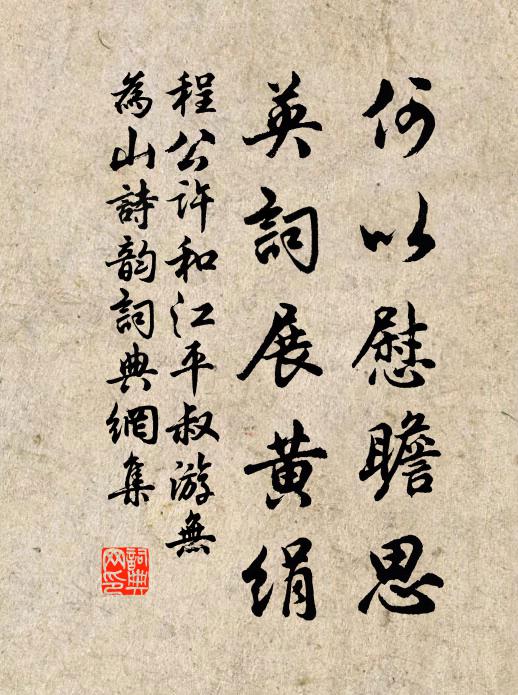 何以慰瞻思
英詞展黄絹
程公许和江平叔游無
為山詩韵詞典網集
詞典网印